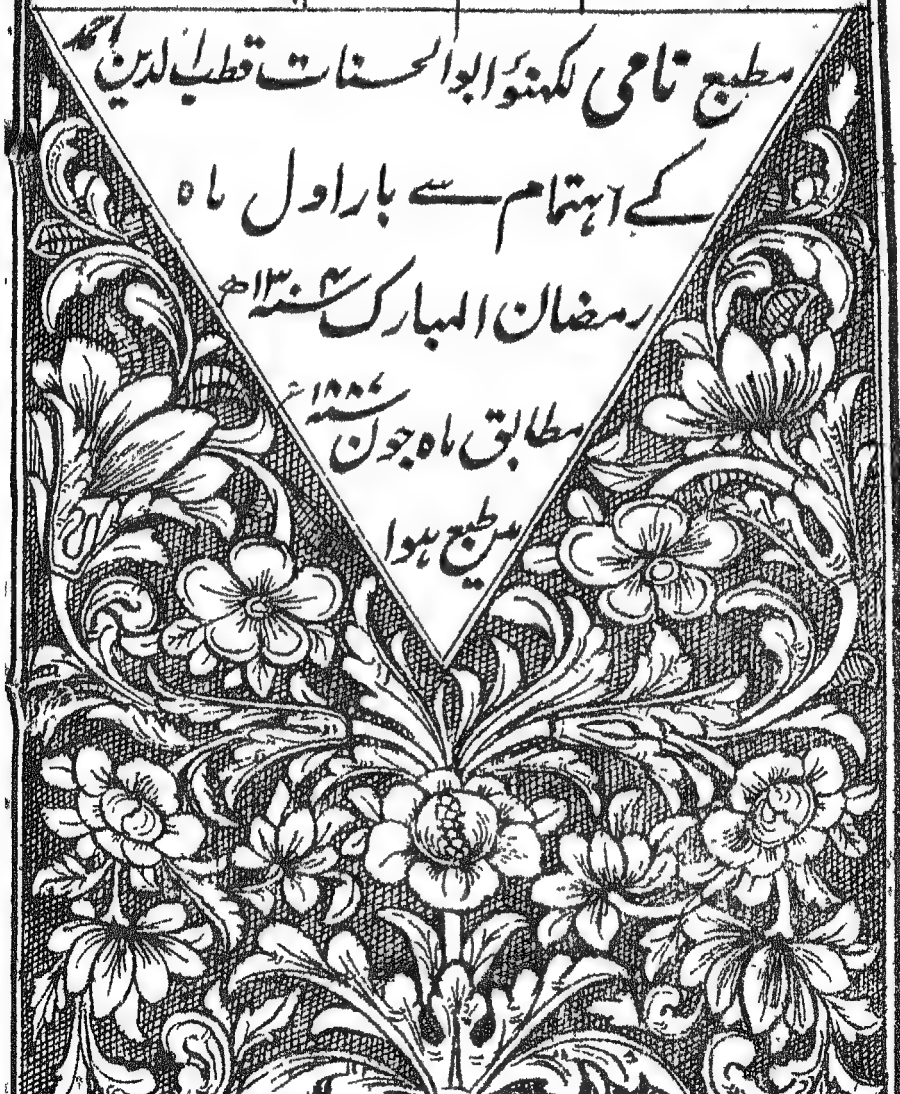 مطبع نامی لکھنؤ ابوالحسنات قطب الدین احمد
کے اہتمام سے بار اول ماہ
رمضان المبارک سنہ ۱۳۰۴ھ
مطابق ماہ جون سنہ ۱۸۸۷ء
میں طبع ہوا